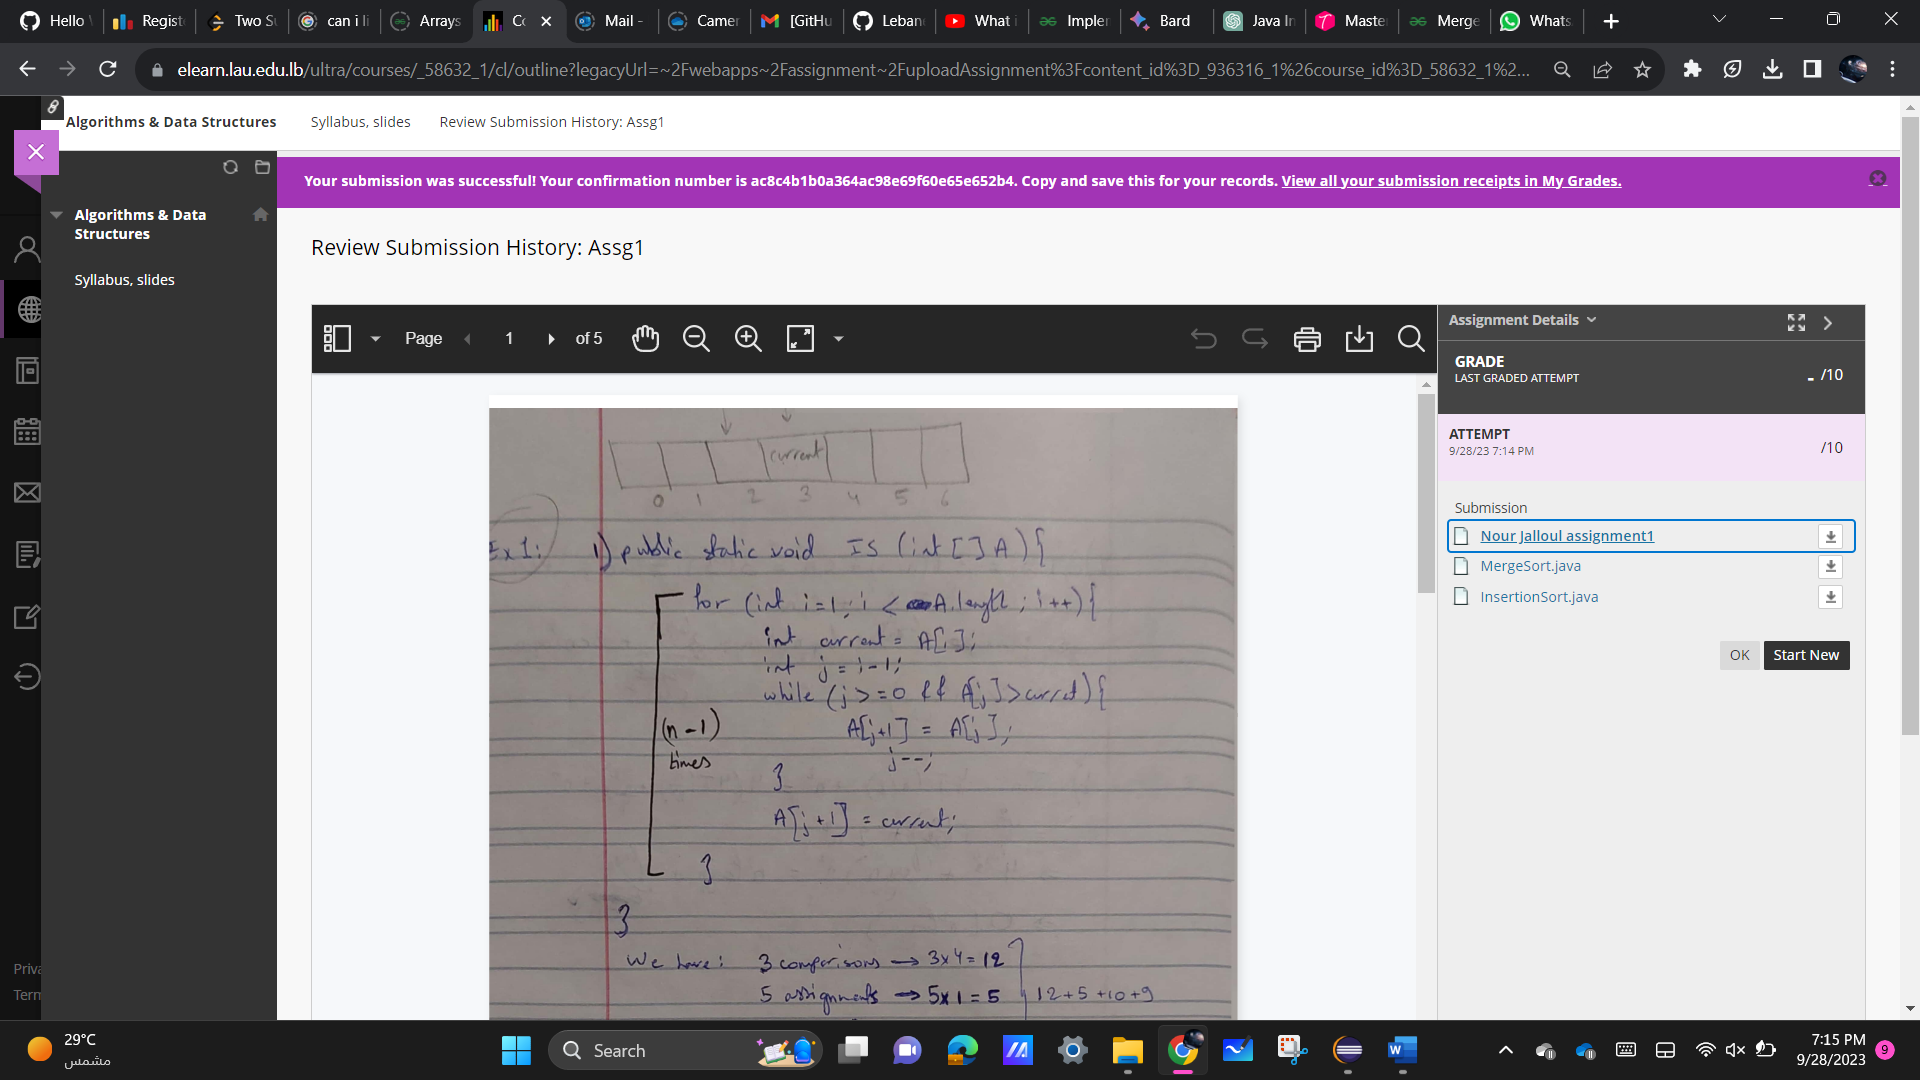 Hello
Regist
Two S
can i li
Arrays
Co
Mail -
Camer
[GitHu
Leban
What i
Implen
Bard
Java In
Maste
Merge
Whats
elearn.lau.edu.lb/ultra/courses/_58632_1/cl/outline?legacyUrl=~2Fwebapps~2Fassignment~2FuploadAssignment%3Fcontent_id%3D_936316_1%26course_id%3D_58632_1%2...
Algorithms & Data Structures Syllabus, slides Review Submission History: Assg1
Your submission was successful! Your confirmation number is ac8c4b1b0a364ac98e69f60e65e652b4. Copy and save this for your records. View all your submission receipts in My Grades.
Algorithms & Data
Structures
Syllabus, slides
Priva
Term
Review Submission History: Assg1
Page 1 of 5
current
0 1 2 3 4 5 6
Ex 1: 1) public static void IS (int [] A) {
for (int i=1; i < A.length; i++) {
int current = A[i];
int j = i-1;
while (j >= 0 && A[j] > curret) {
A[j+1] = A[j];
j--;
}
A[j+1] = current;
}
}
(n-1)
times
We have: 3 comparisons → 3x4 = 12
5 assignments → 5x1 = 5 12+5+10+9
Assignment Details
GRADE
LAST GRADED ATTEMPT
- /10
ATTEMPT
9/28/23 7:14 PM
/10
Submission
Nour Jalloul assignment1
MergeSort.java
InsertionSort.java
OK Start New
29°C
مشمس
Search
7:15 PM
9/28/2023
9